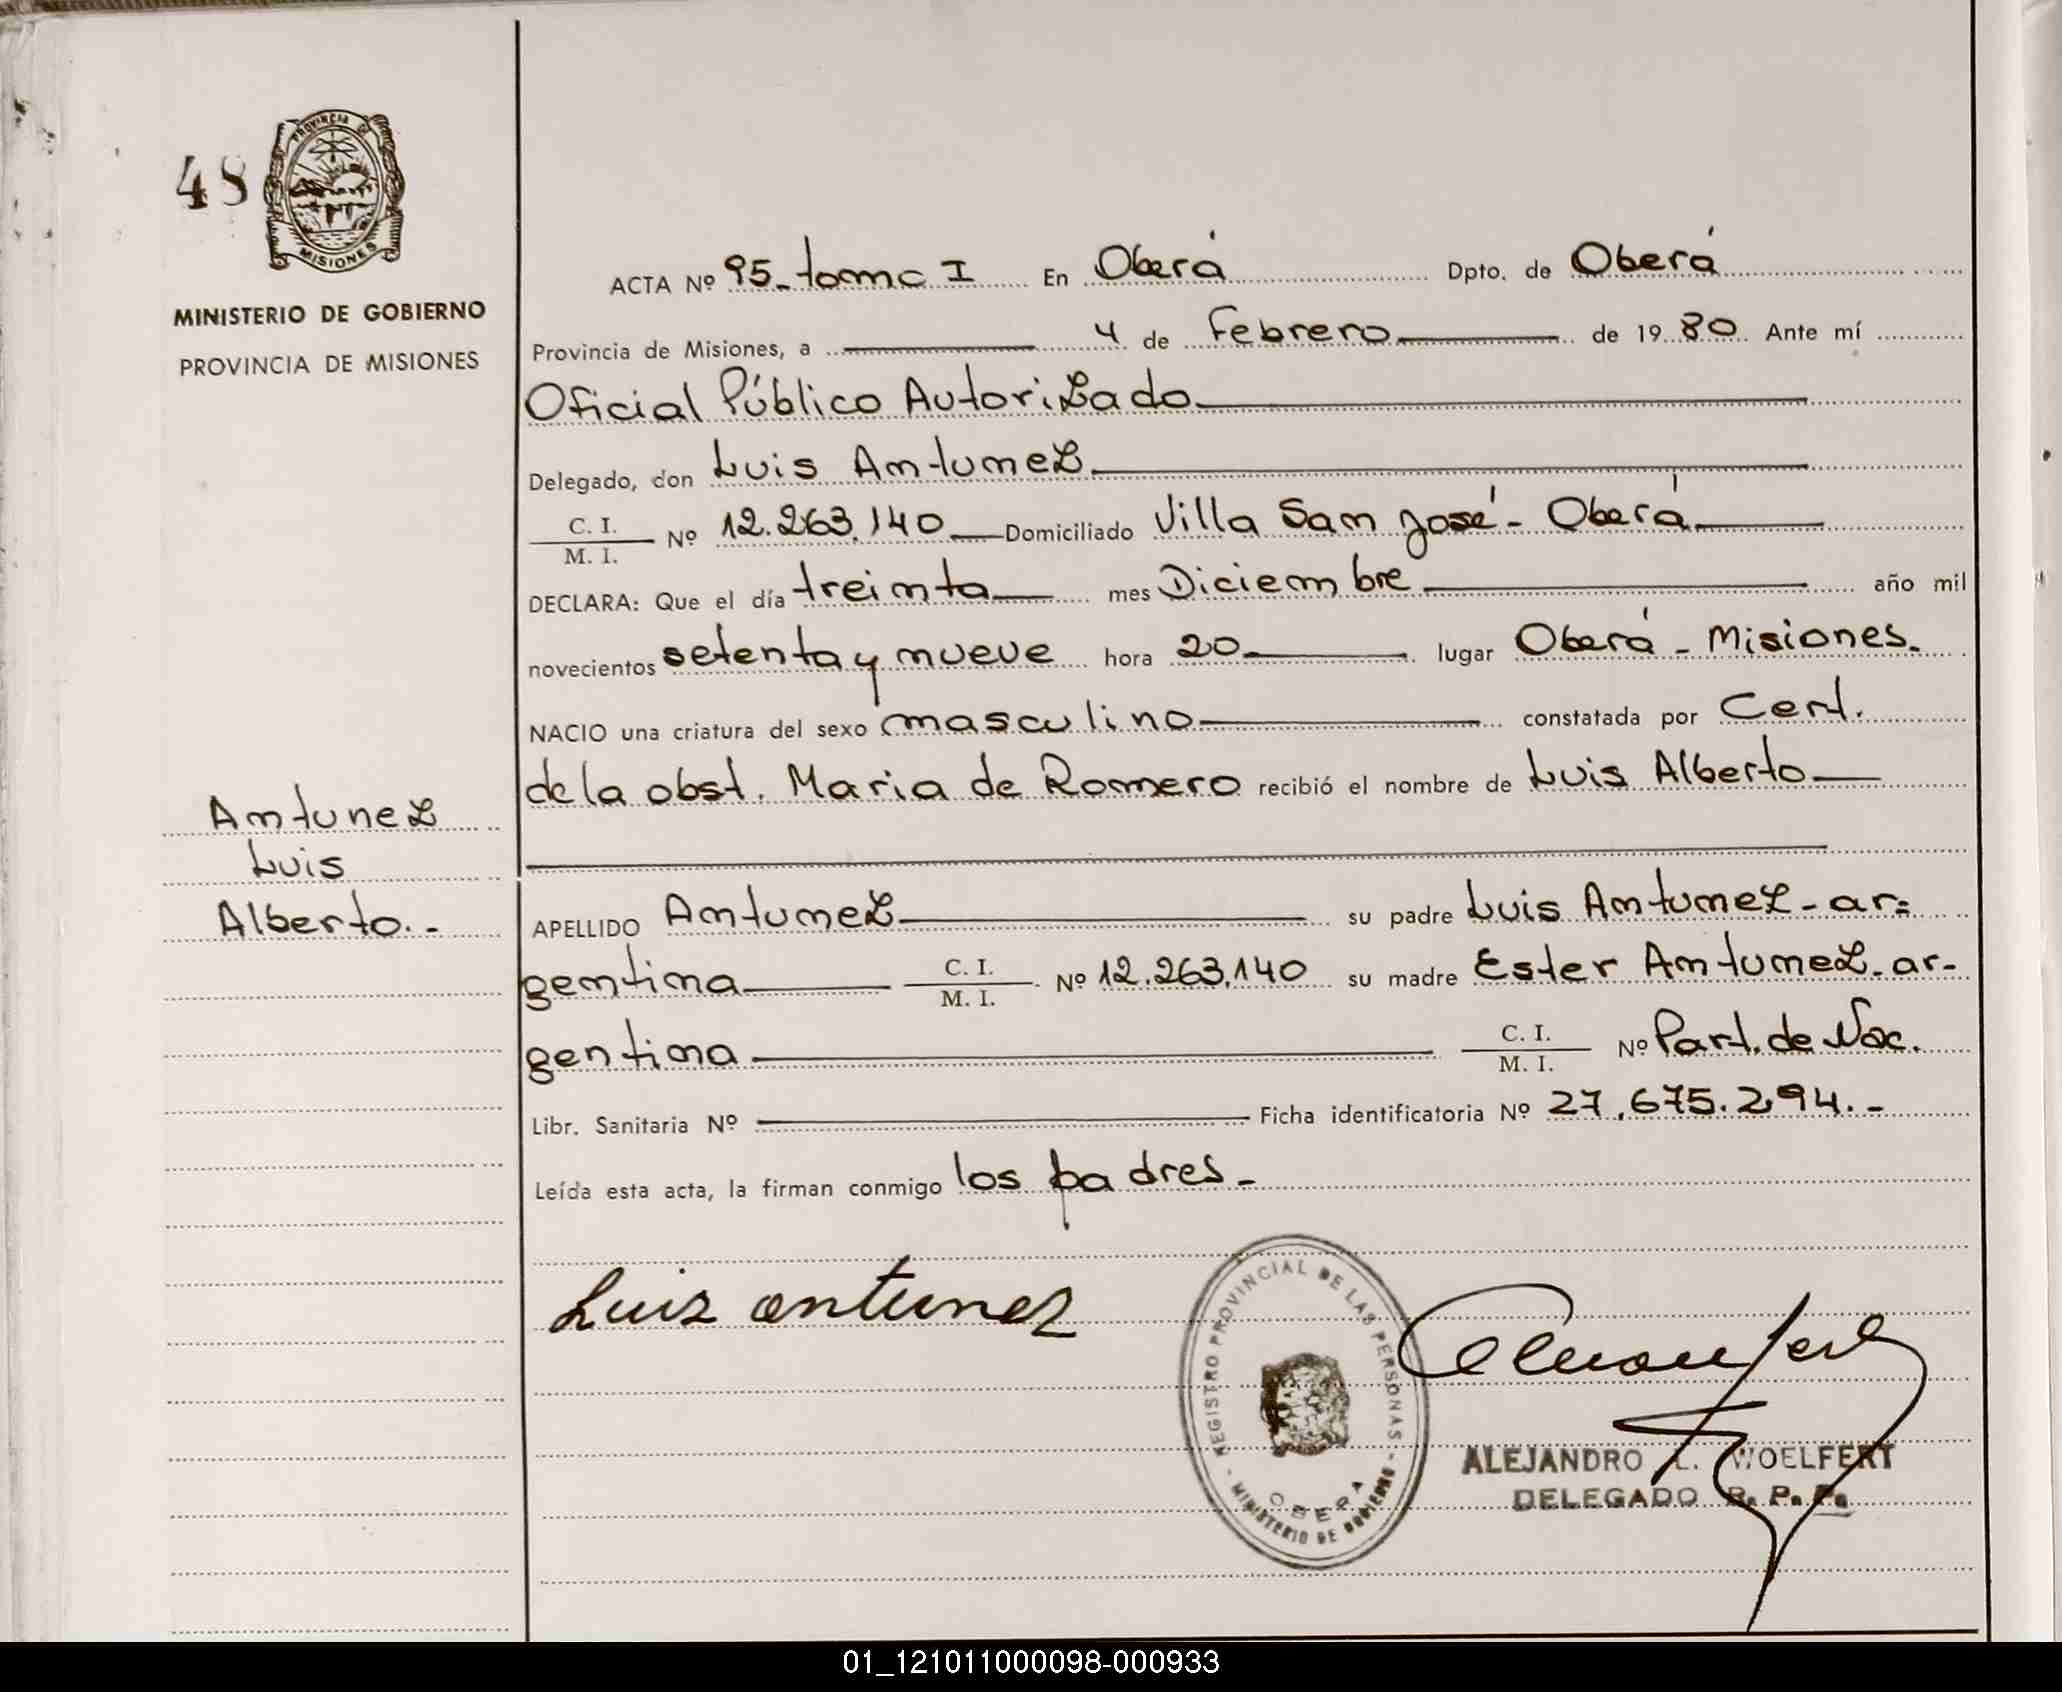 48
PROVINCIA DE
MISIONES
MINISTERIO DE GOBIERNO
PROVINCIA DE MISIONES
Antunez
Luis
Alberto.-
ACTA Nº 95-tomo I En Oberá Dpto. de Oberá
Provincia de Misiones, a 4 de Febrero de 1980 Ante mí
Oficial Público Autorizado
Delegado, don Luis Antunez
C. I.
M. I. Nº 12.263.140 Domiciliado Villa San José - Oberá
DECLARA: Que el día treinta mes Diciembre año mil
novecientos setenta y nueve hora 20 lugar Oberá - Misiones.
NACIO una criatura del sexo masculino constatada por Cert.
de la obst. Maria de Romero recibió el nombre de Luis Alberto
APELLIDO Antunez su padre Luis Antunez - ar=
gentina C. I.
M. I. Nº 12.263.140 su madre Ester Antunez - ar-
gentina C. I.
M. I. Nº Part. de Nac.
Libr. Sanitaria Nº Ficha identificatoria Nº 27.675.294.-
Leída esta acta, la firman conmigo los padres-
Luiz antunez
REGISTRO PROVINCIAL DE LAS PERSONAS
OBERA
MINISTERIO DE GOBIERNO
ALEJANDRO WOELFERT
DELEGADO R. P. P.
01_121011000098-000933